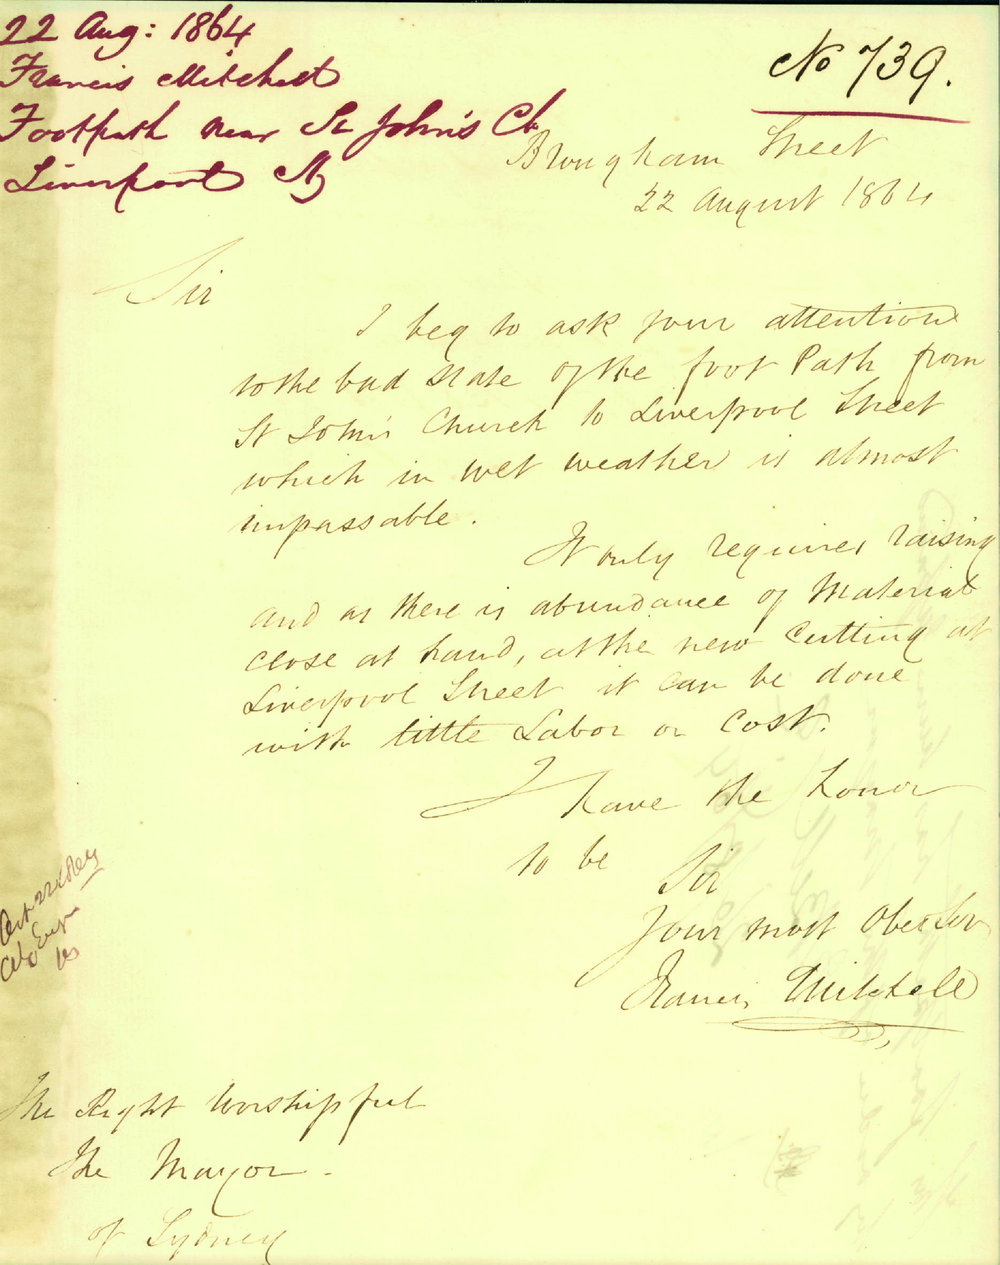 22 Aug: 1864
Francis Mitchell
Footpath near St John's Ch
Liverpool St
No 739.
Brougham Street
22 August 1864
Sir
I beg to ask your attention
to the bad state of the foot Path from
St John's Church to Liverpool Street
which in wet weather is almost
impassable.
It only requires raising
and as there is abundance of Material
close at hand, at the new Cutting at
Liverpool Street it can be done
with little Labor or Cost.
I have the honor
to be
Sir
Your most Obet Ser
Francis Mitchell
The Right Worshipful
The Mayor
of Sydney